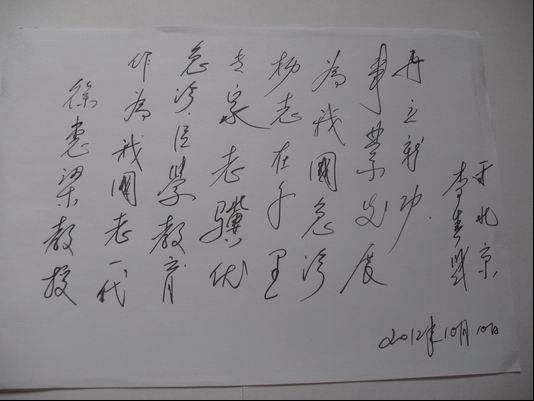 徐惠梁教授
作為我國老一代
急诊医學教育
专家老驥伏
枥志在千里
為我國急诊
事業发展
再立新功.
李春盛
于北京
2012年10月10日